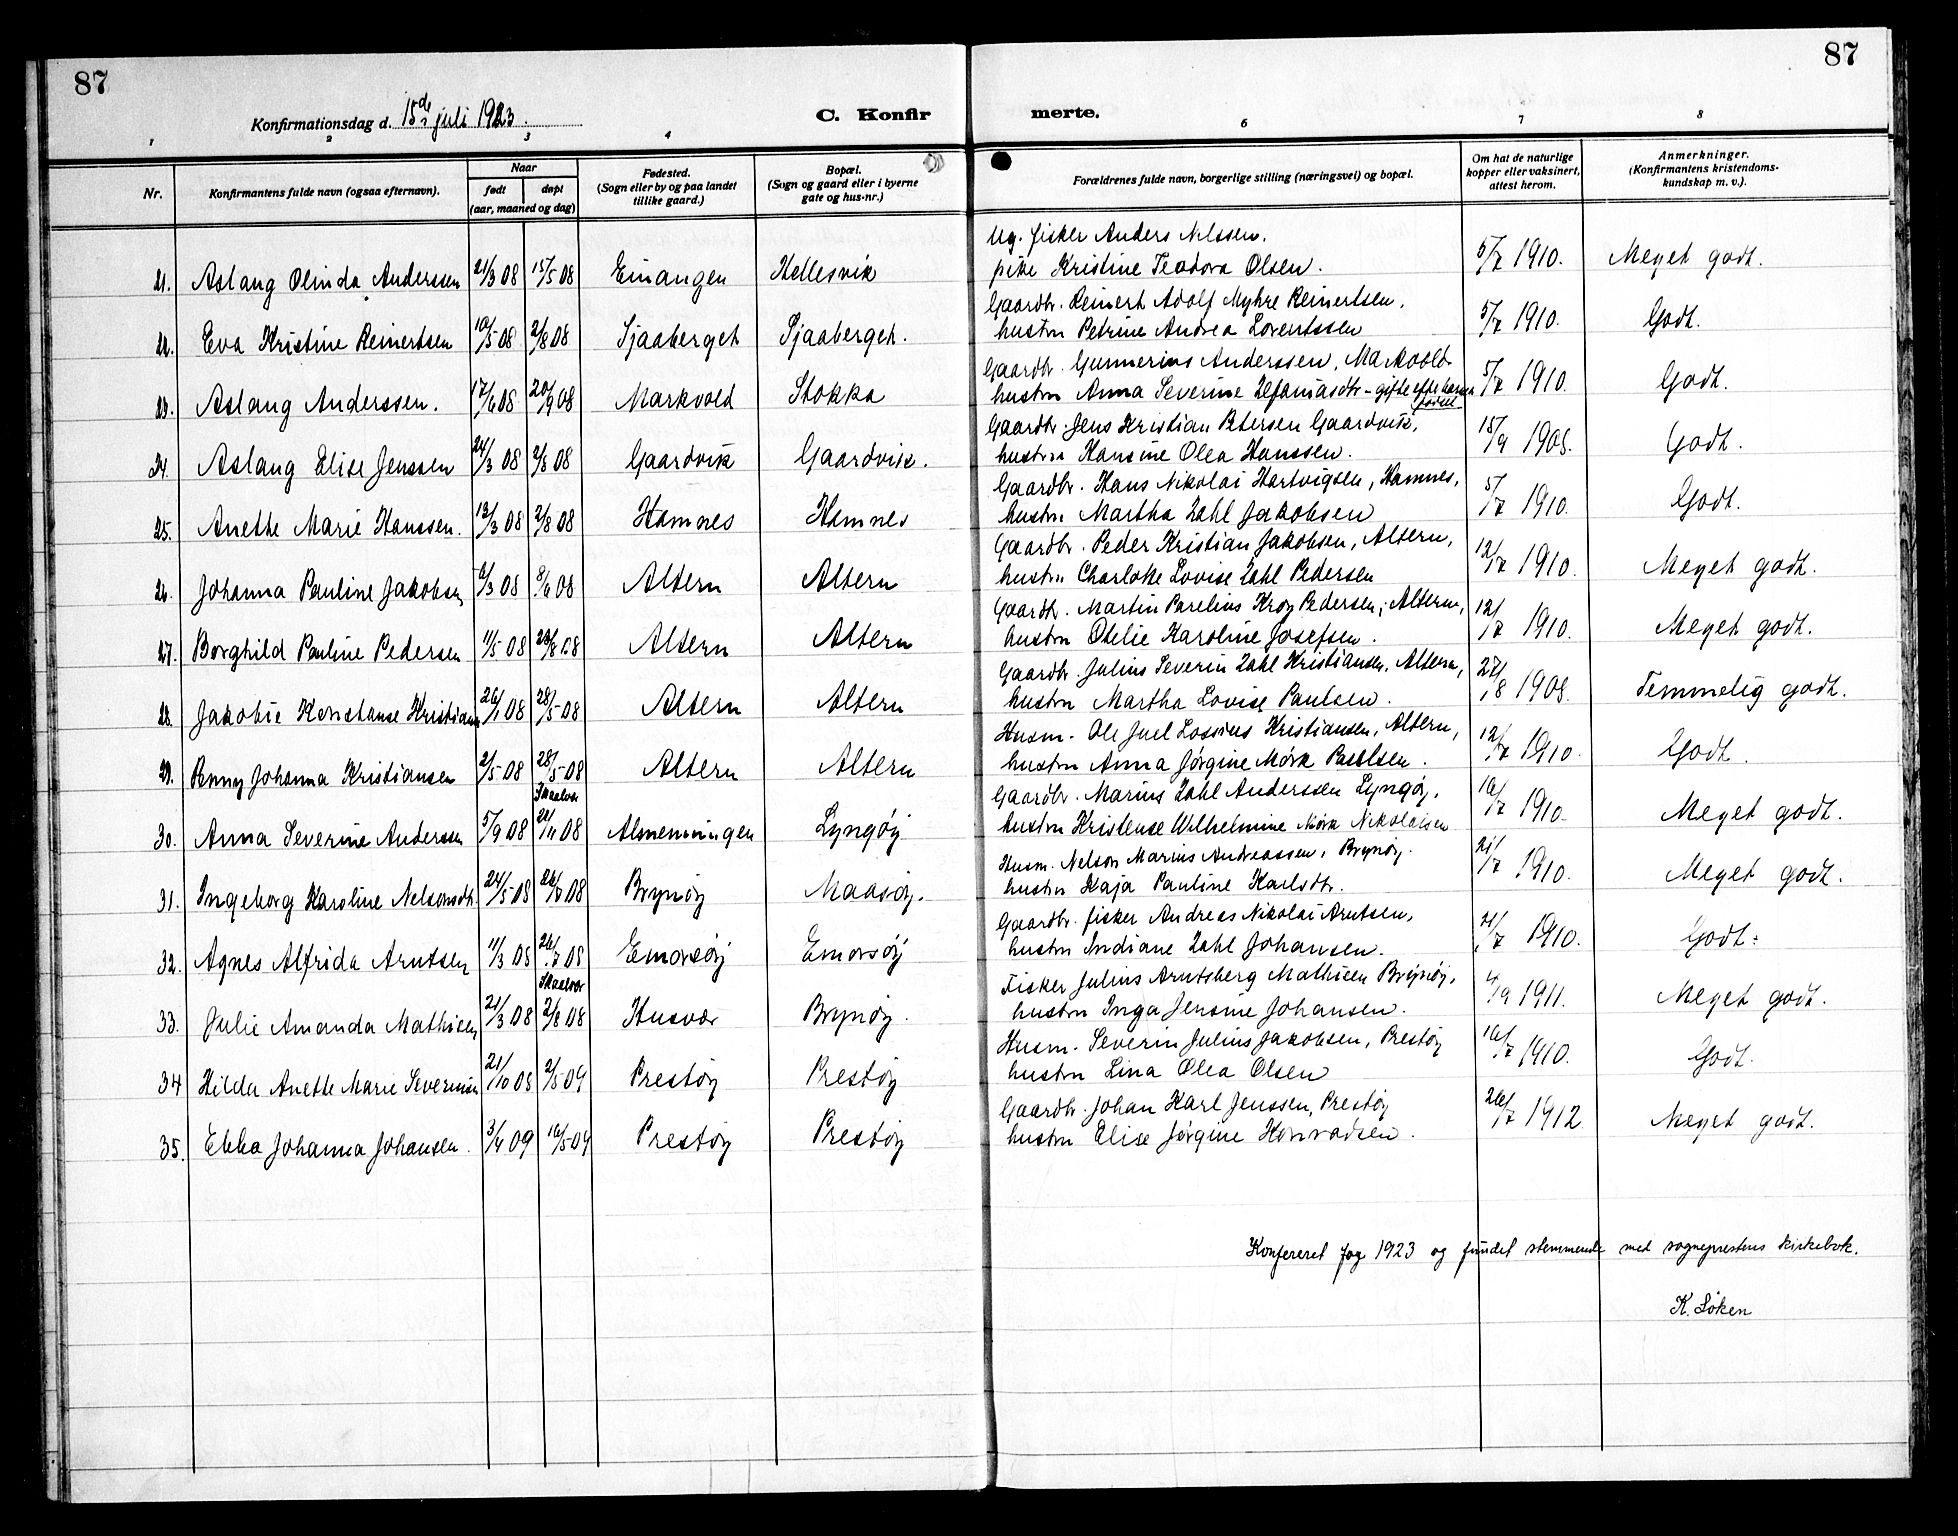 87
87
Konfirmationsdag d. 15de juli 1923.
C. Konfir
merte.
1 2 3 4 6 7 8
Nr.
Konfirmantens fulde navn (ogsaa efternavn).
Naar
født
døpt
(aar, maaned og dag)
Fødested.
(Sogn eller by og paa landet
tillike gaard.)
Bopæl.
(Sogn og gaard eller i byerne
gate og hus-nr.)
Forældrenes fulde navn, borgerlige stilling (næringsvei) og bopæl.
Om hat de naturlige
kopper eller vaksinert,
attest herom.
Anmerkninger.
(Konfirmantens kristendoms-
kundskap m. v.).
Ug. fisker Anders Nilssen.
21. Aslaug Olinda Anderssen 21/3 08 15/5 08 Einangen Hellesvik pike Kristine Teodora Olsen. 5/7 1910. Meget godt.
Gaardbr. Reinert Adolf Myhre Reinertsen,
22. Eva Kristine Reinertsen 10/5 08 2/8 08 Sjaaberget Sjaaberget. hustru Petrine Andrea Lorentssen 5/7 1910. Godt.
Gaardbr. Gunnerius Anderssen, Markvold
23. Aslaug Anderssen. 17/6 08 20/9 08 Markvold Stokka hustru Anna Severine Zefaniasdtr - gifte efter barnets 5/7 1910. Godt.
fødsel -
Gaardbr. Jens Kristian Petersen Gaardvik,
24. Aslaug Elise Jenssen 24/3 08 2/8 08 Gaardvik Gaardvik. hustru Hansine Olea Hanssen. 15/9 1908. Godt.
Gaardbr. Hans Nikolai Hartvigsen, Hamnes,
25. Anethe Marie Hanssen. 13/3 08 2/8 08 Hamnes Hamnes hustru Martha Zahl Jakobsen 5/7 1910. Godt.
Gaardbr. Peder Kristian Jakobsen, Altern,
26. Johanna Pauline Jakobsen 6/3 08 8/6 08 Altern Altern hustru Charlotte Lovise Zahl Pedersen 12/7 1910. Meget godt.
Gaardbr. Martin Parelius Krøy Pedersen, Altern,
27. Borghild Pauline Pedersen 11/5 08 23/8 08 Altern Altern hustru Otelie Karoline Josefsen. 12/7 1910. Meget godt.
Gaardbr. Julius Severin Zahl Kristiansen, Altern,
28. Jakobie Konstanse Kristians 26/1 08 28/5 08 Altern Altern hustru Martha Lovise Paulsen. 27/8 1908. Temmelig godt.
Husm. Ole Juel Lossius Kristiansen, Altern,
29. Penny Johanna Kristiansen 2/5 08 28/5 08 Altern Altern hustru Anna Jørgine Mørk 12/7 1910. Godt.
Skaalvær
Gaardbr. Marius Zahl Anderssen Lyngøy,
30. Anna Severine Anderssen 5/9 08 22/11 08 Almenningen Lyngøy hustru Kristense Wilhelmine Mørk Nikolaisen 16/7 1910. Meget godt.
Husm. Nelson Marius Andreassen, Brynøy.
31. Ingeborg Karoline Nelsonsdtr. 24/5 08 26/7 08 Brynøy Maasøy. hustru Kaja Pauline Karlsdtr. 21/7 1910. Meget godt.
Gaardbr. fisker Andreas Nikolai Arntsen,
32. Agnes Alfrida Arntsen 11/3 08 26/7 08 Emorsøy Emorsøy hustru Indiane Zahl Johansen. 21/7 1910. Godt.
Skaalvær
Fisker Julius Arntsberg Mathisen Brynøy,
33. Julie Amanda Mathisen 21/3 08 2/8 08 Husvær Brynøy. hustru Inga Jensine Johansen. 4/9 1911. Meget godt.
Husm. Severin Julius Jakobsen, Prestøy
34 Hilda Anethe Marie Severinsen 21/10 08 2/5 09 Prestøy Prestøy hustru Lina Olea Olsen 16/7 1910. Godt.
Gaardbr. Johan Karl Jenssen, Prestøy
35. Ebba Johanna Johansen. 3/4 09 16/5 09 Prestøy Prestøy hustru Elise Jørgine Konradsen. 26/7 1912. Meget godt.
Konfereret for 1923 og fundet stemmende med sogneprestens kirkebok.
K. Løken